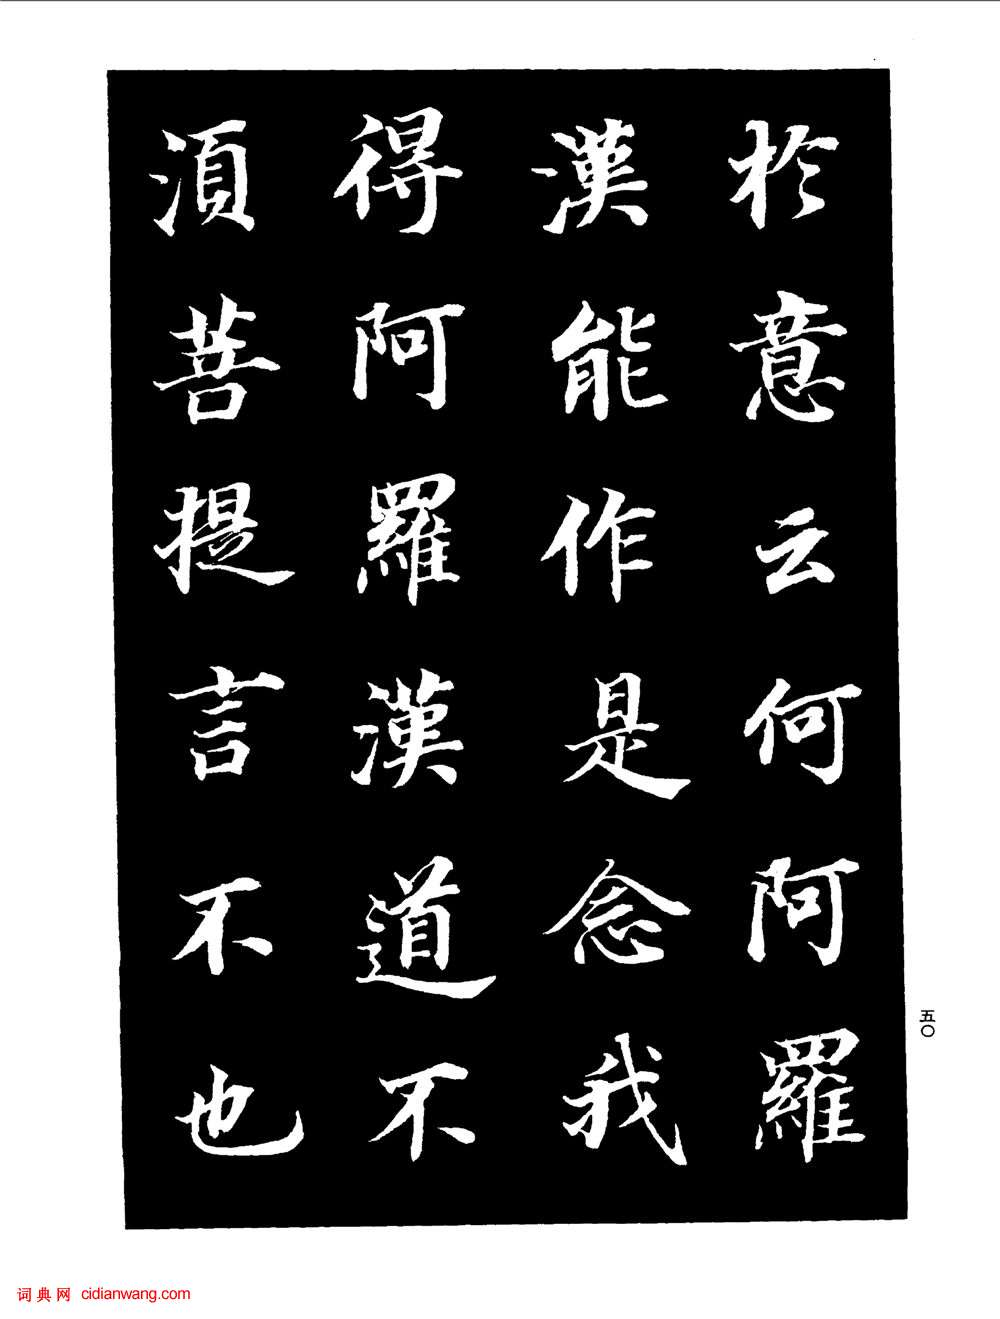 於意云何阿羅
漢能作是念我
得阿羅漢道不
須菩提言不也
五〇
词典网 cidianwang.com